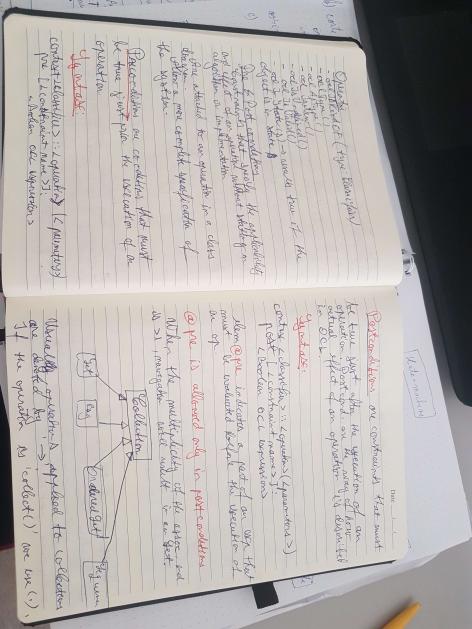 Queries
- oclIsUndefined()
- oclIsInvalid()
- oclIsNew()
object is in state s
Pre & Post conditions
constraints that specify the applicability
and effect of an operation without stating an
algorithm or implementation
are attached to an operation in a class
diagram
allow a more complete specification of
the system.
Pre-conditions are conditions that must
be true just prior the execution of an
operation
Syntax:
context <classifier> :: <operation> (<parameters>)
pre [<constraint name>]:
<Boolean OCL expression>
Postconditions are constraints that must
be true just after the execution of an
operation. Postcond are the way of how
actual effect of an operation is described
in OCL.
Syntax:
context <classifier> :: <operation> (<parameters>)
post [<constraint name>]:
<Boolean OCL expression>
@pre indicates a part of an expr that
must be evaluated before the execution of
an op.
@pre is allowed only in postconditions
When the multiplicity of the assoc end
is >1, navigation will result in a set.
Collection
Set
Bag
Ordered Set
Sequence
Usually, operations applied to collections
are denoted by '->'
If the operation is 'collect()' we use (.)
Date